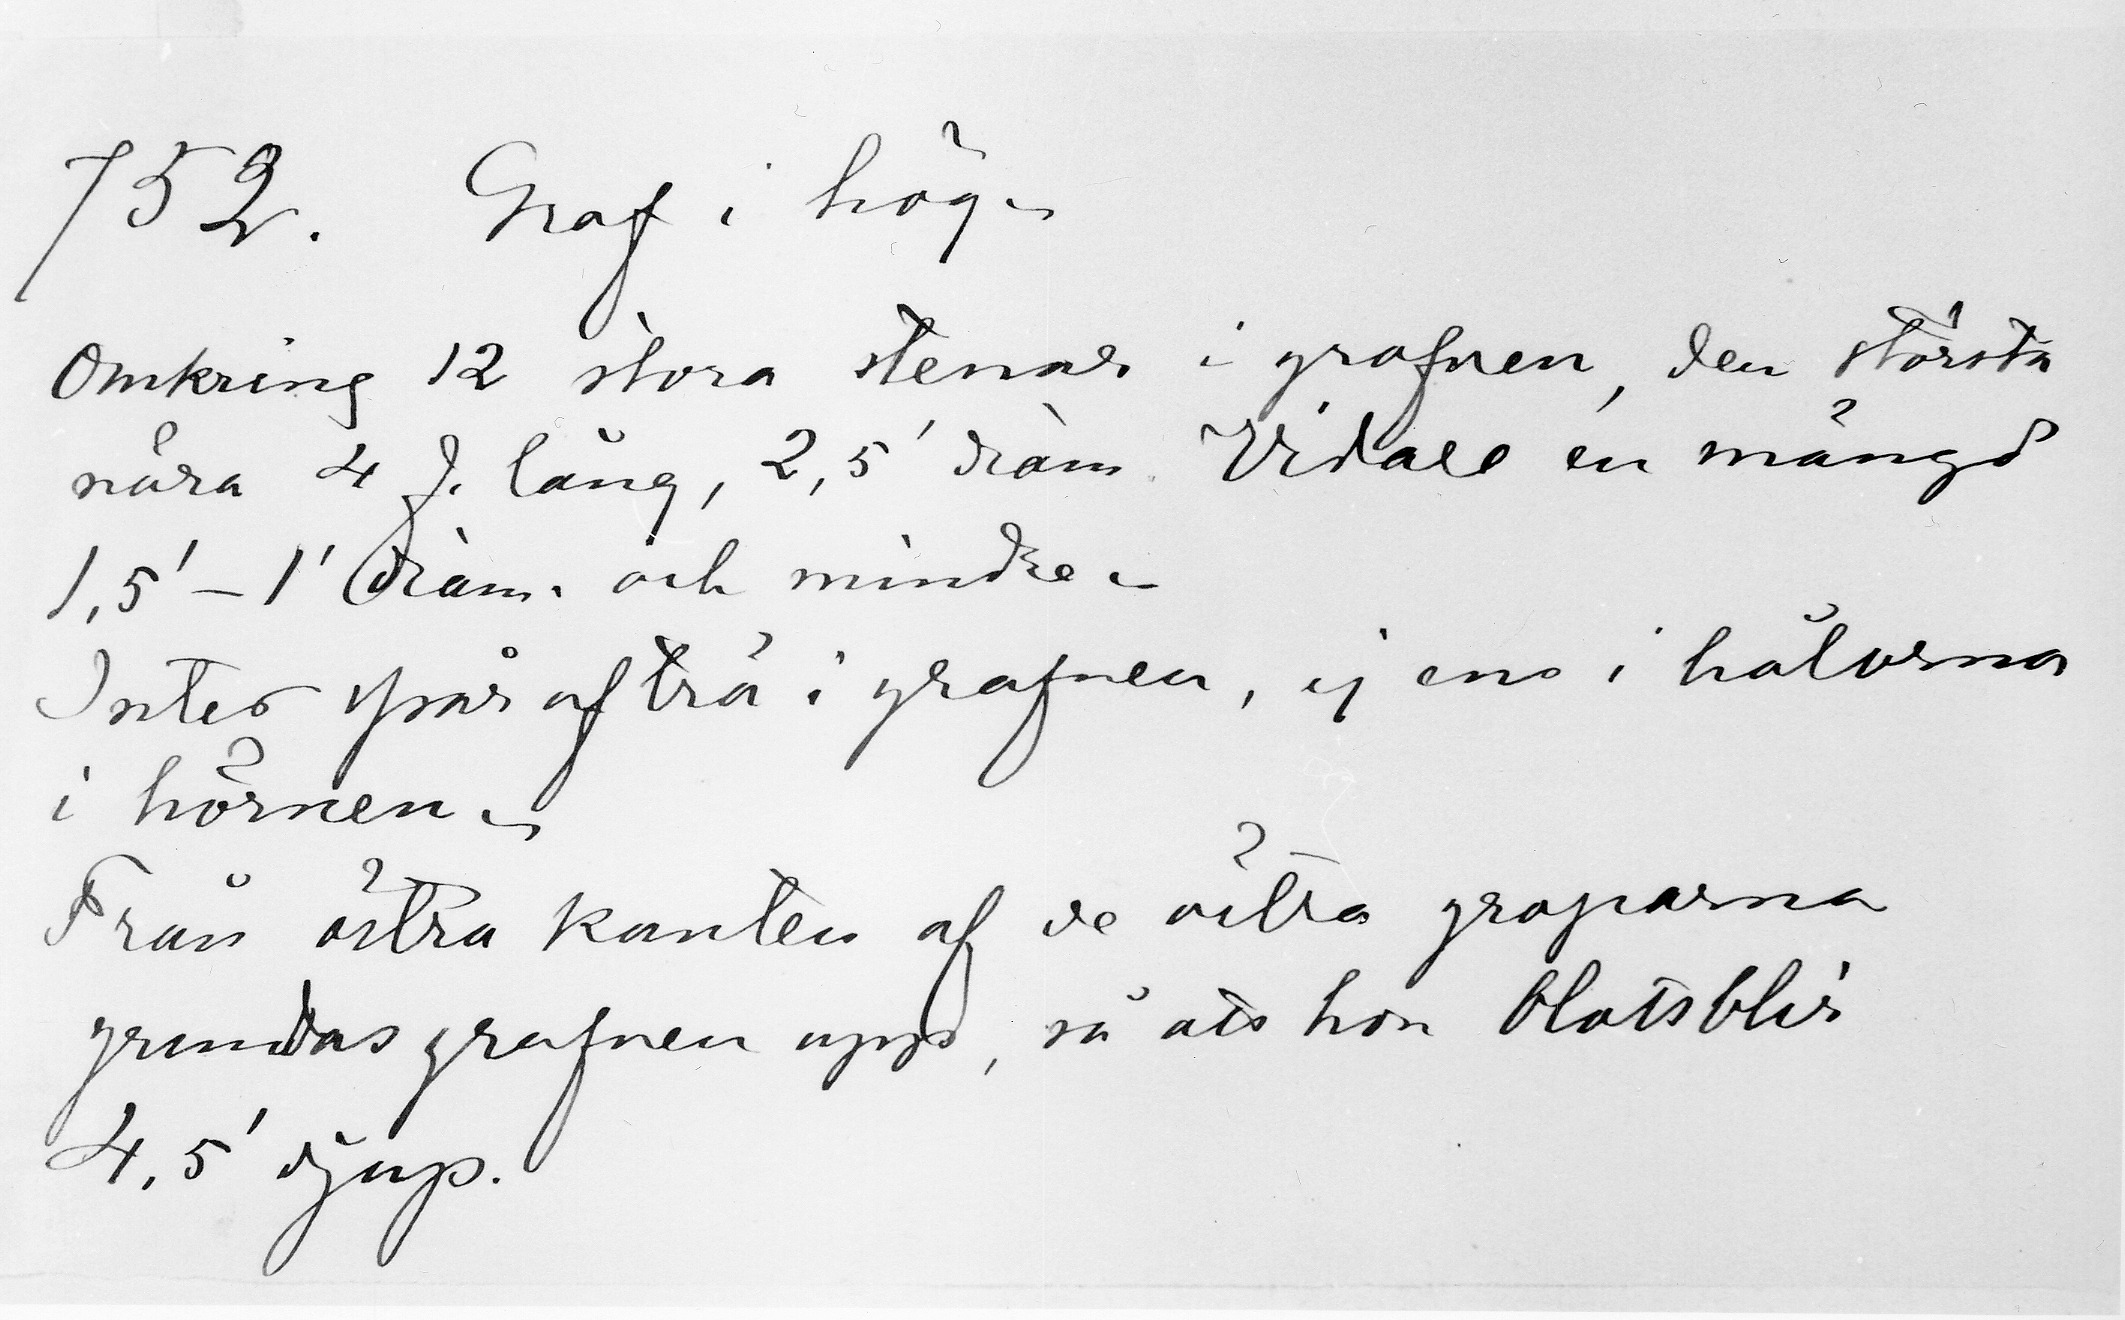 752. Graf i hög.
Omkring 12 stora stenar i grafven, den största
nära 4 f. lång, 2,5' diam. Vidare en mängd
1,5' – 1' diam. och mindre.
Intet spår af trä i grafven, ej ens i hålorna
i hörnen.
Från östra kanten af de östra groparna
grundas grafven upp, så att hon blott blir
4,5' djup.